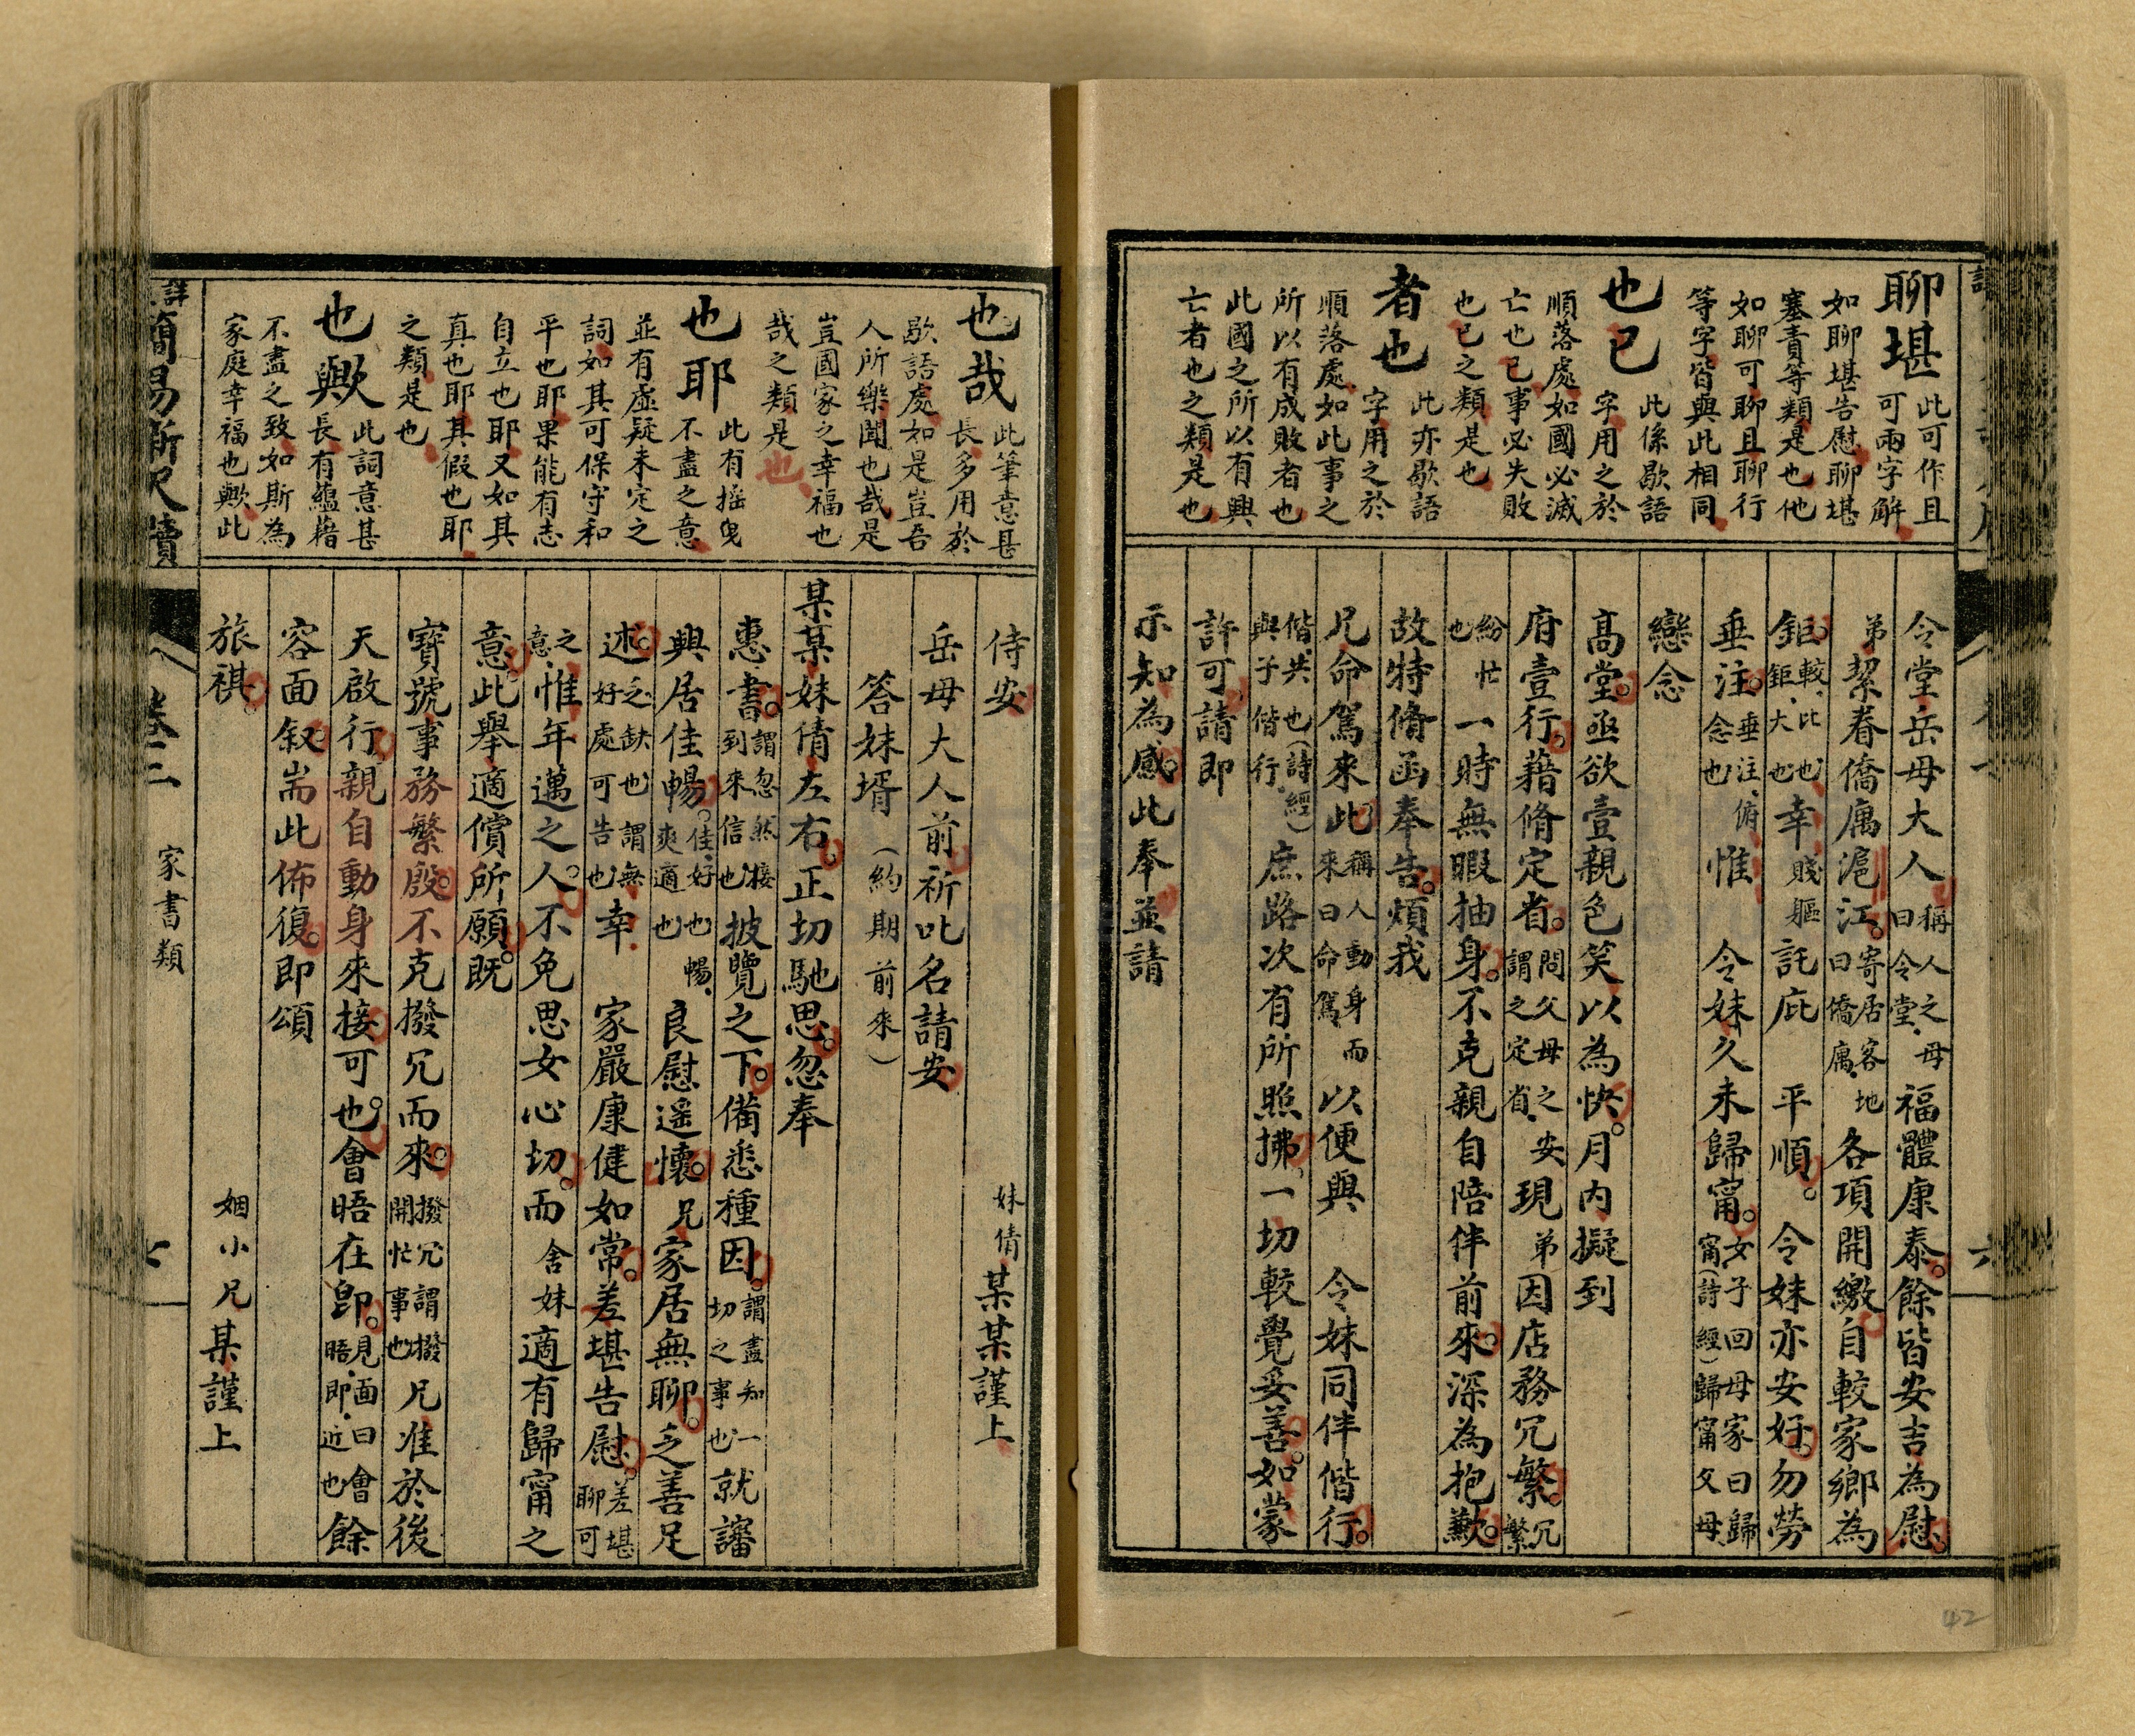 聊堪 此可作且
可兩字解
如聊堪告慰聊堪
塞責等類是也他
如聊可聊且聊行
等字皆與此相同
也已 此係歇語
字用之於
順落處如國必滅
亡也已事必失敗
也已之類是也
者也 此亦歇語
字用之於
順落處如此事之
所以有成敗者也
此國之所以有興
亡者也之類是也
令堂岳母大人 稱人之母曰令堂 福體康泰。餘皆安吉為慰。
弟挈眷僑寓滬江。寄居客地曰僑寓 各項開繳自較家鄉為
鉅。較、比也、鉅、大也 幸 賤軀 託庇 平順。令妹亦安好。勿勞
垂注。垂注、俯念也 惟 令妹久未歸甯。女子回母家曰歸甯(詩經)歸甯父母
戀念
高堂。亟欲壹親色笑以為快。月內擬到
府壹行。藉脩定省。問父母之安謂之定省、 現弟因店務冗繁。冗繁
紛忙也 一時無暇抽身。不克親自陪伴前來。深為抱歉。
故特脩函奉告。煩我
兄命駕來此。稱人動身而來曰命駕、 以便與 令妹同伴偕行。
偕、共也(詩經)與子偕行、 庶路次有所照拂、一切較覺妥善。如蒙
許可、請即
示知為感。此奉並請
也哉 此筆意甚
長多用於
歇語處如是豈吾
人所樂聞也哉是
豈國家之幸福也
哉之類是也
也耶 此有搖曳
不盡之意
並有虛疑未定之
詞如其可保守和
平也耶果能有志
自立也耶又如其
真也耶其假也耶
之類是也
也歟 此詞意甚
長有蘊藉
不盡之致如斯為
家庭幸福也歟此
侍安 妹倩某某謹上
岳母大人前祈叱名請安
答妹壻(約期前來)
某某妹倩左右。正切馳思。忽奉
惠書。謂忽然接到來信也 披覽之下。備悉種因。謂盡知一切之事也 就諗
興居佳暢。佳、好也暢、爽適也 良慰遙懷。兄家居無聊。乏善足
述。乏、缺也謂無好處可告也 幸 家嚴康健如常。差堪告慰。差堪聊可
之意 惟年邁之人。不免思女心切。而 舍妹適有歸甯之
意。此舉適償所願。既
寶號事務繁殷。不克撥冗而來。撥冗謂撥開忙事也 兄准於後
天啟行、親自動身來接可也。會晤在卽。見面曰會晤、即、近也 餘
容面敘。耑此佈復。即頌
旅祺。 姻小兄某謹上
簡易新尺牘
卷二 家書類
七
六
42